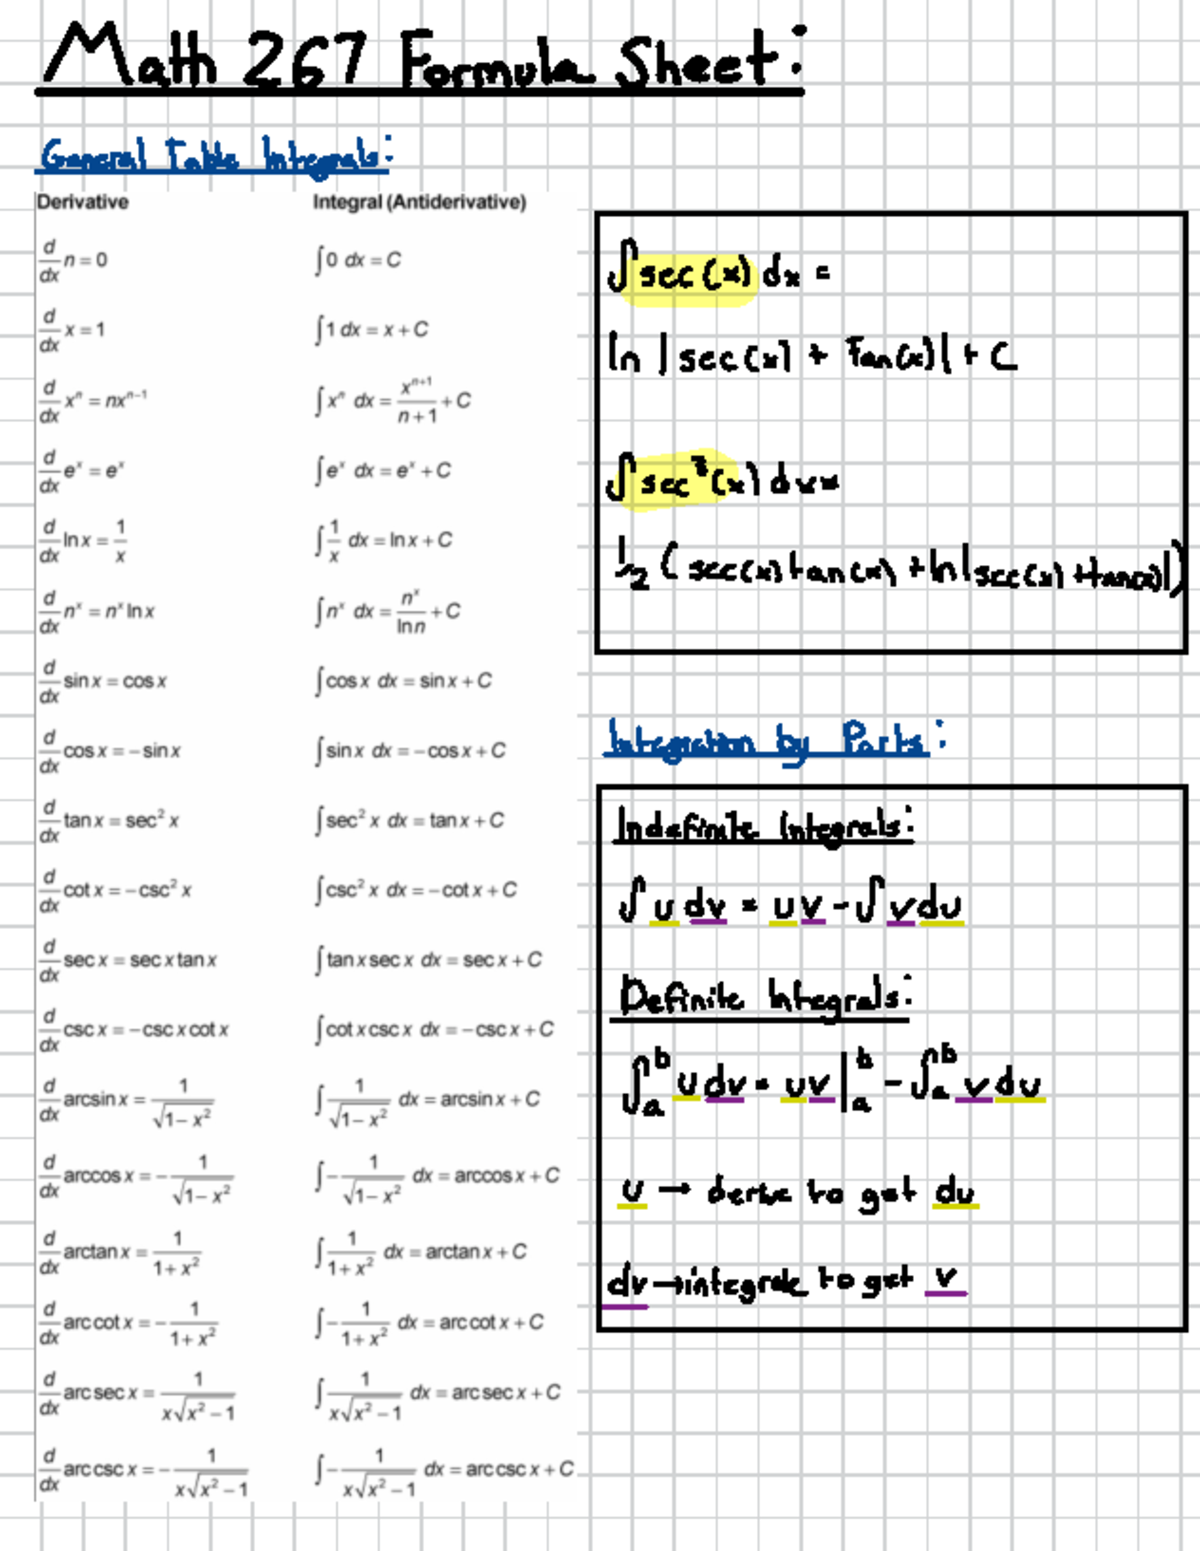 Math 267 Formula Sheet:
General Table Integrals:
Derivative Integral (Antiderivative)
d/dx n = 0 ∫0 dx = C
d/dx x = 1 ∫1 dx = x + C
d/dx xⁿ = nxⁿ⁻¹ ∫xⁿ dx = xⁿ⁺¹/(n+1) + C
d/dx eˣ = eˣ ∫eˣ dx = eˣ + C
d/dx ln x = 1/x ∫1/x dx = ln x + C
d/dx nˣ = nˣ ln x ∫nˣ dx = nˣ/ln n + C
d/dx sin x = cos x ∫cos x dx = sin x + C
d/dx cos x = −sin x ∫sin x dx = −cos x + C
d/dx tan x = sec² x ∫sec² x dx = tan x + C
d/dx cot x = −csc² x ∫csc² x dx = −cot x + C
d/dx sec x = sec x tan x ∫tan x sec x dx = sec x + C
d/dx csc x = −csc x cot x ∫cot x csc x dx = −csc x + C
d/dx arcsin x = 1/√(1−x²) ∫1/√(1−x²) dx = arcsin x + C
d/dx arccos x = −1/√(1−x²) ∫−1/√(1−x²) dx = arccos x + C
d/dx arctan x = 1/(1+x²) ∫1/(1+x²) dx = arctan x + C
d/dx arc cot x = −1/(1+x²) ∫−1/(1+x²) dx = arc cot x + C
d/dx arc sec x = 1/(x√(x²−1)) ∫1/(x√(x²−1)) dx = arc sec x + C
d/dx arc csc x = −1/(x√(x²−1)) ∫−1/(x√(x²−1)) dx = arc csc x + C
∫sec(x) dx =
ln |sec(x) + Tan(x)| + C
∫sec³(x) dx =
1/2 (sec(x)tan(x) + ln|sec(x) + tan(x)|)
Integration by Parts:
Indefinite Integrals:
∫u dv = uv − ∫v du
Definite Integrals:
∫ₐᵇ u dv = uv|ₐᵇ − ∫ₐᵇ v du
u → derive to get du
dv → integrate to get v